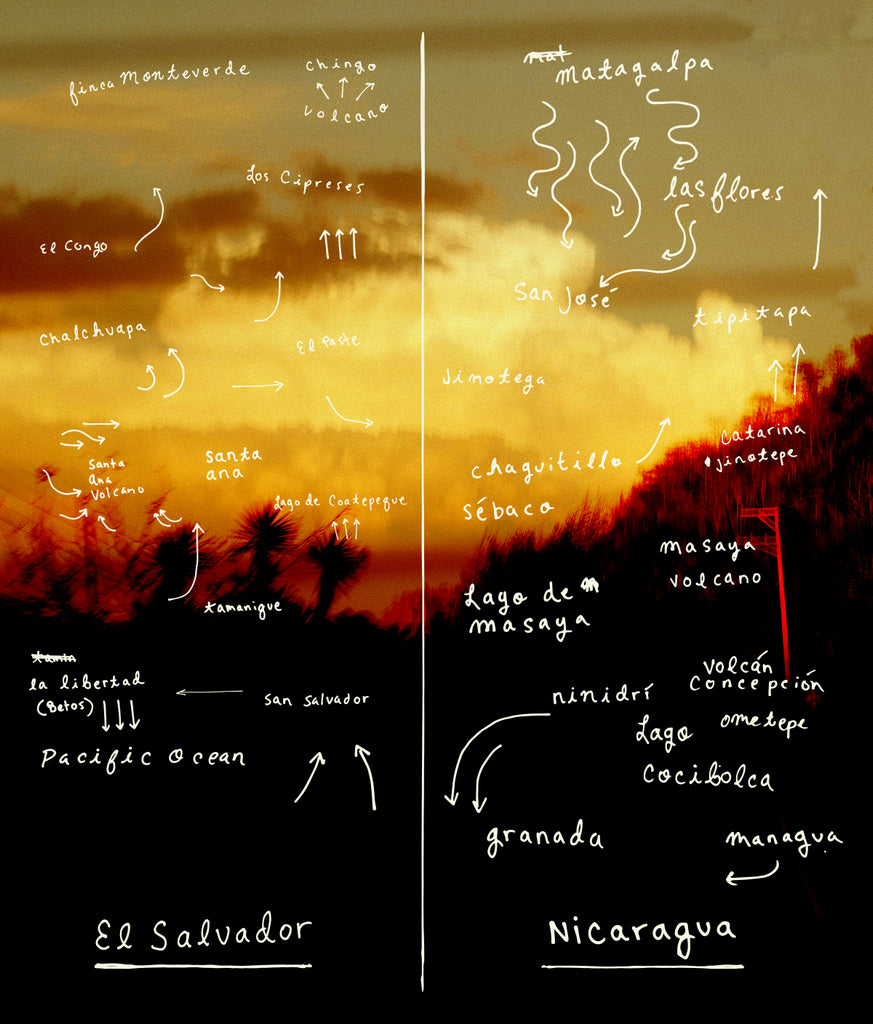 finca Monteverde
Chingo
Volcano
Los Cipreses
El Congo
Chalchuapa
El Paste
Santa
Ana
Volcano
Santa
ana
Lago de Coatepeque
tamanique
la libertad
(Betos)
San Salvador
Pacific Ocean
El Salvador
mat
matagalpa
las flores
San José
tipitapa
Jinotega
Catarina
jinotepe
Chaguitillo
Sébaco
masaya
Volcano
Lago de m
masaya
Volcán
Concepción
ninidrí
Lago
ometepe
Cocibolca
granada
managua
Nicaragua